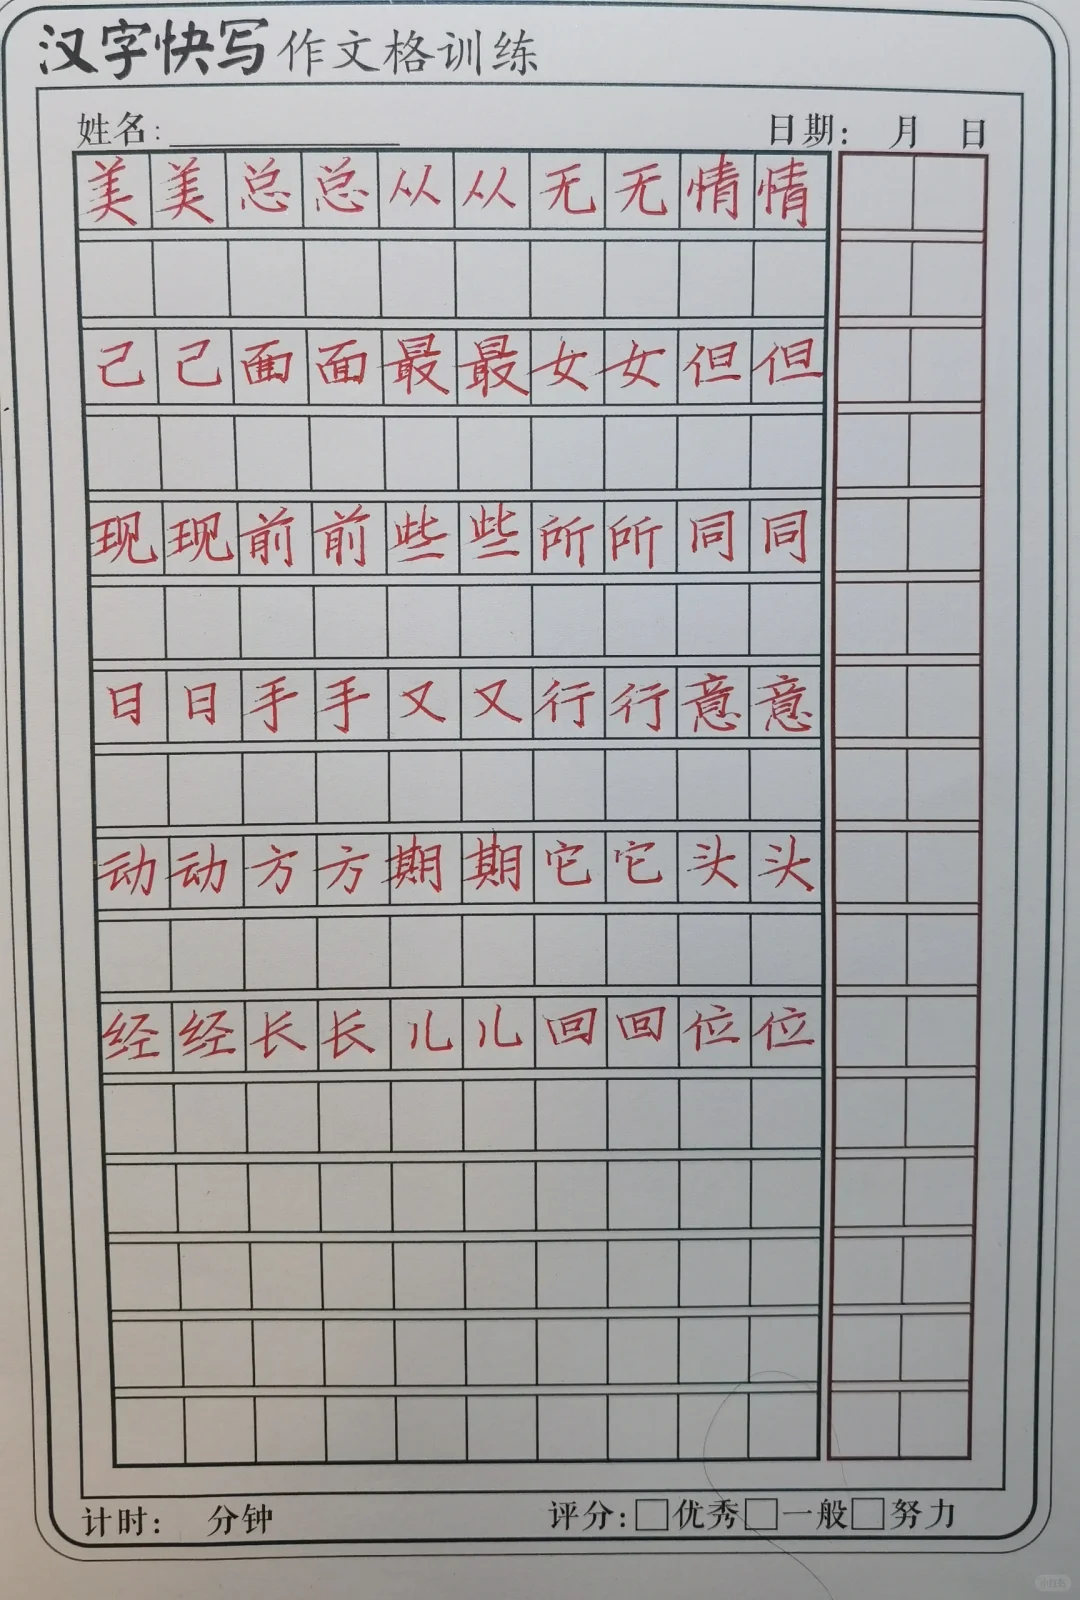 汉字快写作文格训练
姓名: 日期: 月 日
美美总总从从无无情情
己己面面最最女女但但
现现前前些些所所同同
日日手手又又行行意意
动动方方期期它它头头
经经长长儿儿回回位位
计时: 分钟 评分:□优秀□一般□努力
小红书